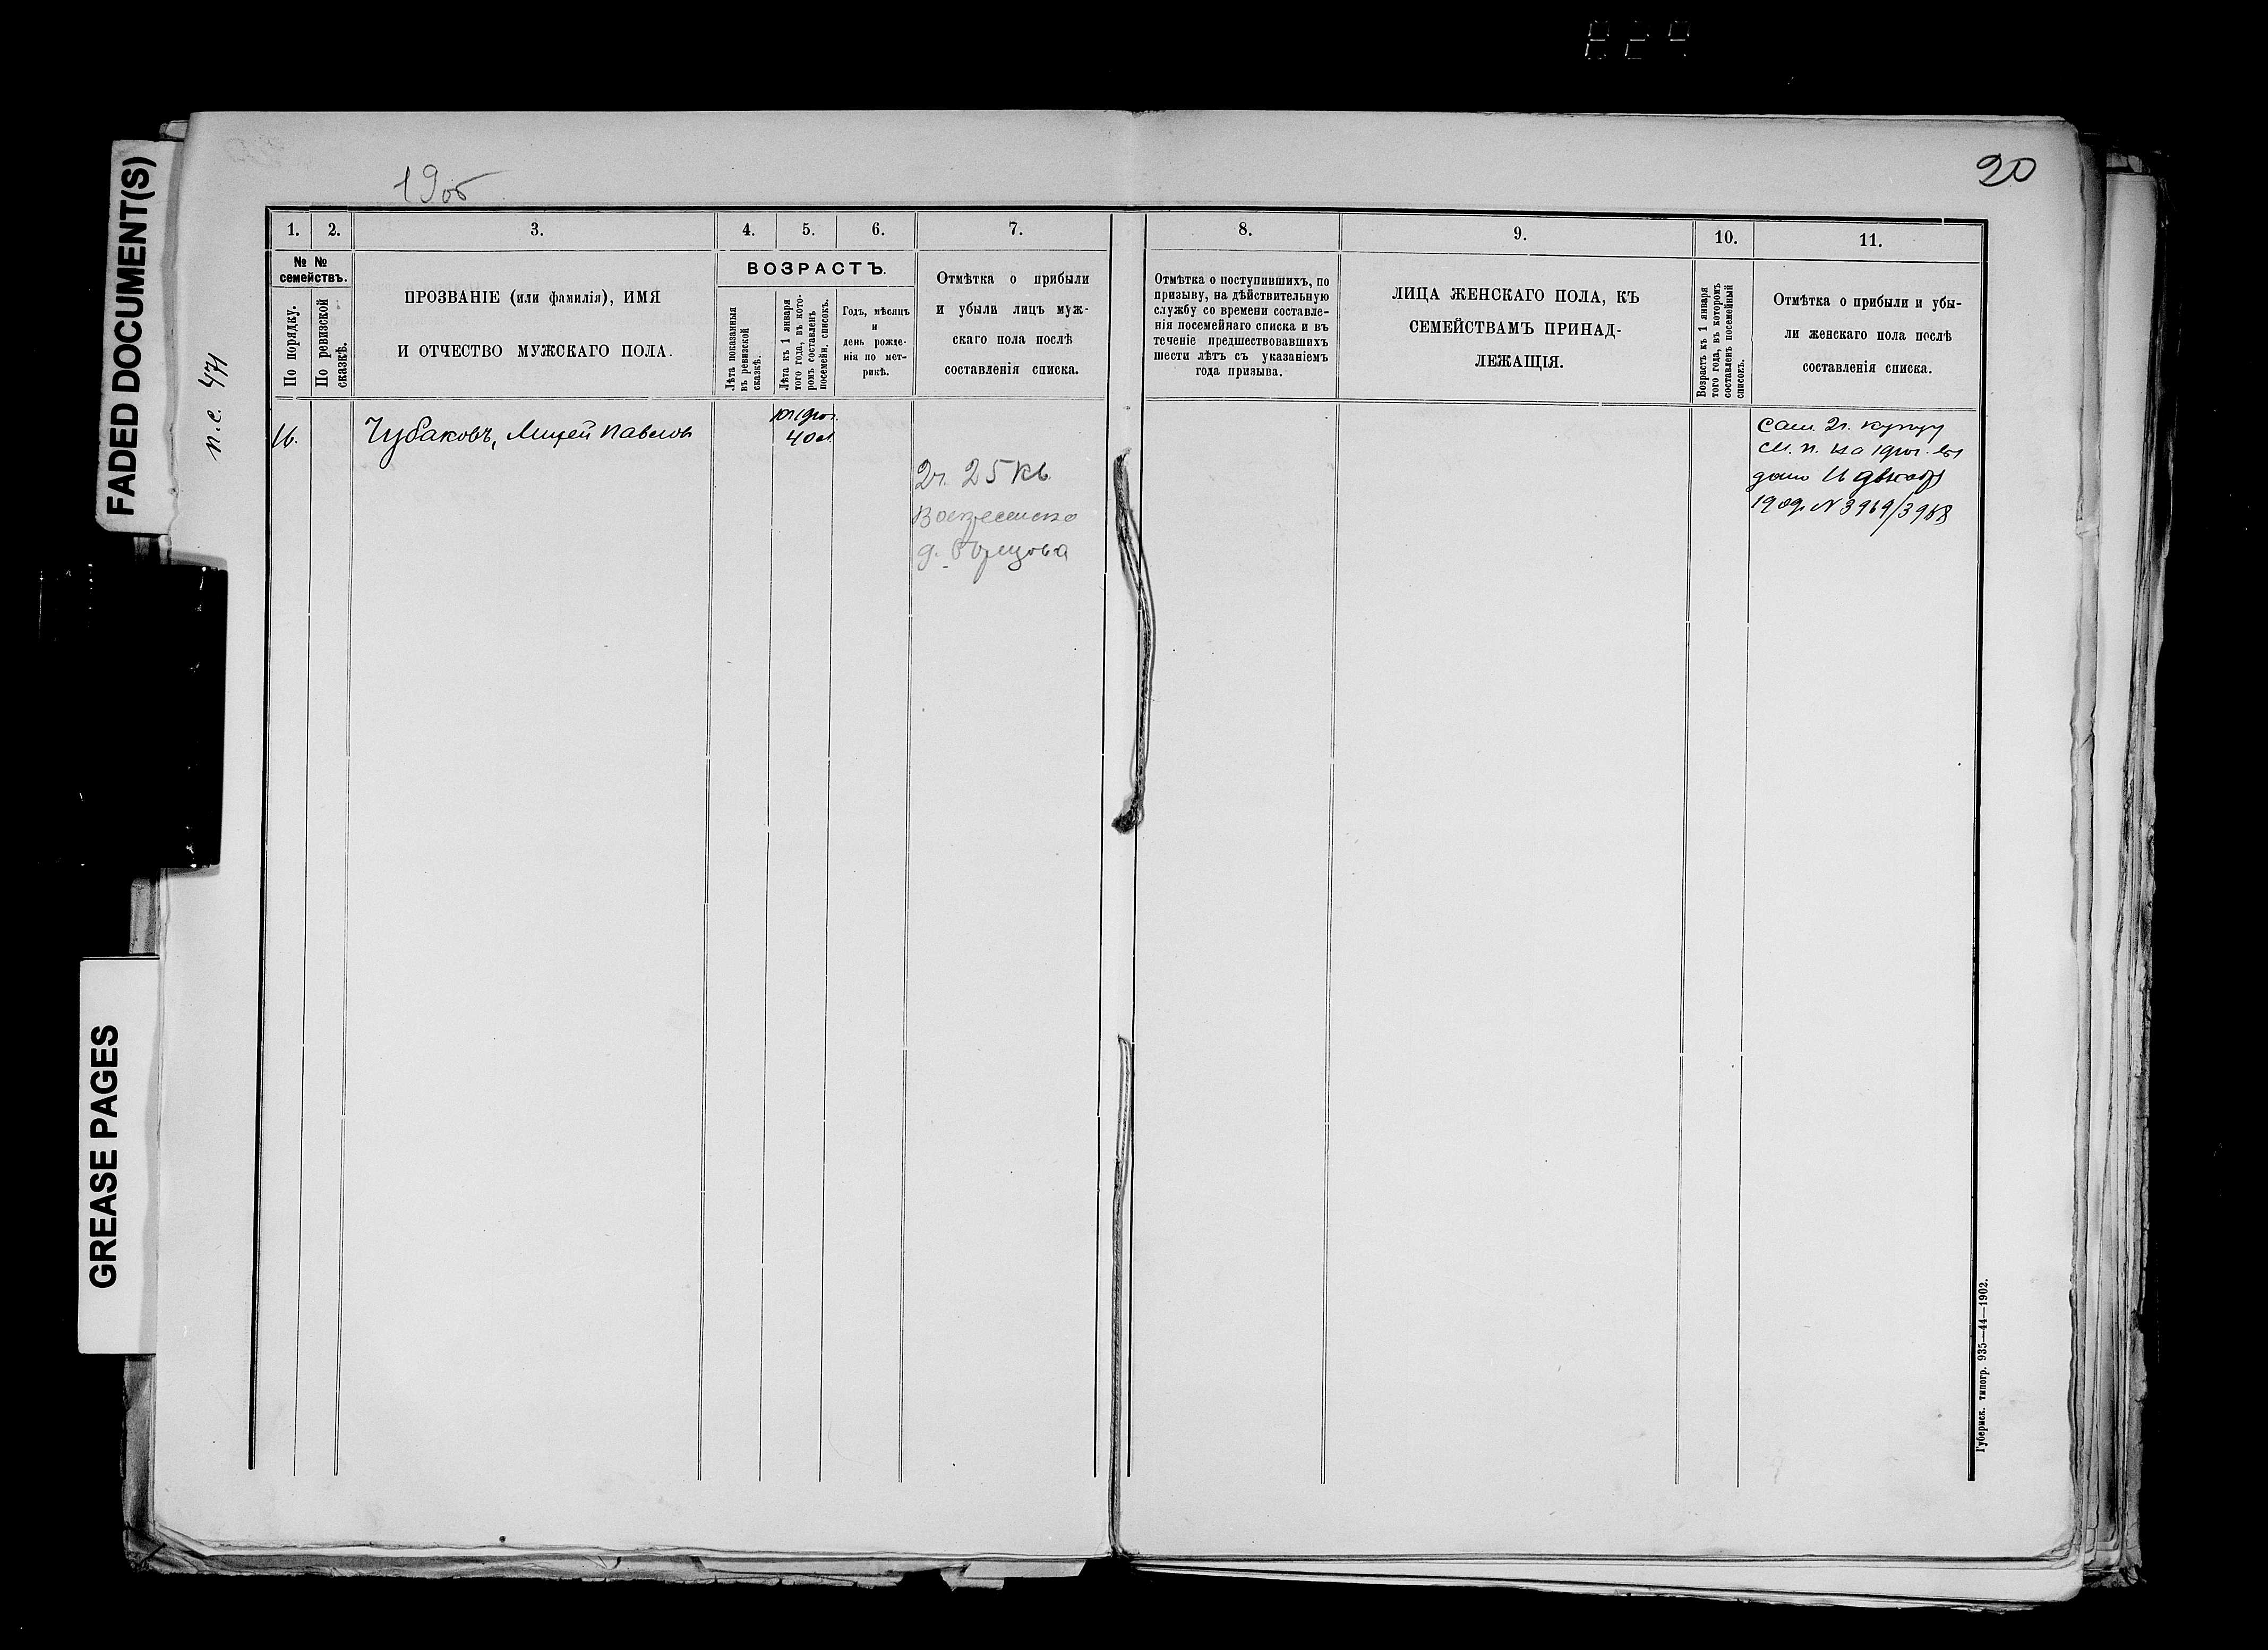 829
FADED DOCUMENT(S)
GREASE PAGES
1905
20
п.с. 471
1.
2.
3.
4.
5.
6.
7.
8.
9.
10.
11.
№ №
семействъ.
По порядку.
По ревизской
сказкѣ.
ПРОЗВАНІЕ (или фамилія), ИМЯ
И ОТЧЕСТВО МУЖСКАГО ПОЛА.
ВОЗРАСТЪ.
Лѣта показанныя
въ ревизской
сказкѣ.
Лѣта къ 1 января
того года, въ кото-
ромъ составленъ
посемейн. списокъ.
Годъ, мѣсяцъ
и
день рожде-
нія по мет-
рикѣ.
Отмѣтка о прибыли
и убыли лицъ муж-
скаго пола послѣ
составленія списка.
Отмѣтка о поступившихъ, по
призыву, на дѣйствительную
службу со времени составле-
нія посемейнаго списка и въ
теченіе предшествовавшихъ
шести лѣтъ съ указаніемъ
года призыва.
ЛИЦА ЖЕНСКАГО ПОЛА, КЪ
СЕМЕЙСТВАМЪ ПРИНАД-
ЛЕЖАЩІЯ.
Возрастъ къ 1 января
того года, въ которомъ
составленъ посемейный
списокъ.
Отмѣтка о прибыли и убы-
ли женскаго пола послѣ
составленія списка.
16.
Чубаковъ, Михей Павлов
40 л.
2ч. 25 кв.
Воскресенско
д.
Сам. 2г. купцу
на
дано 16 декаб
190 № 3969/3968
Губернск. типогр. 935—44—1902.